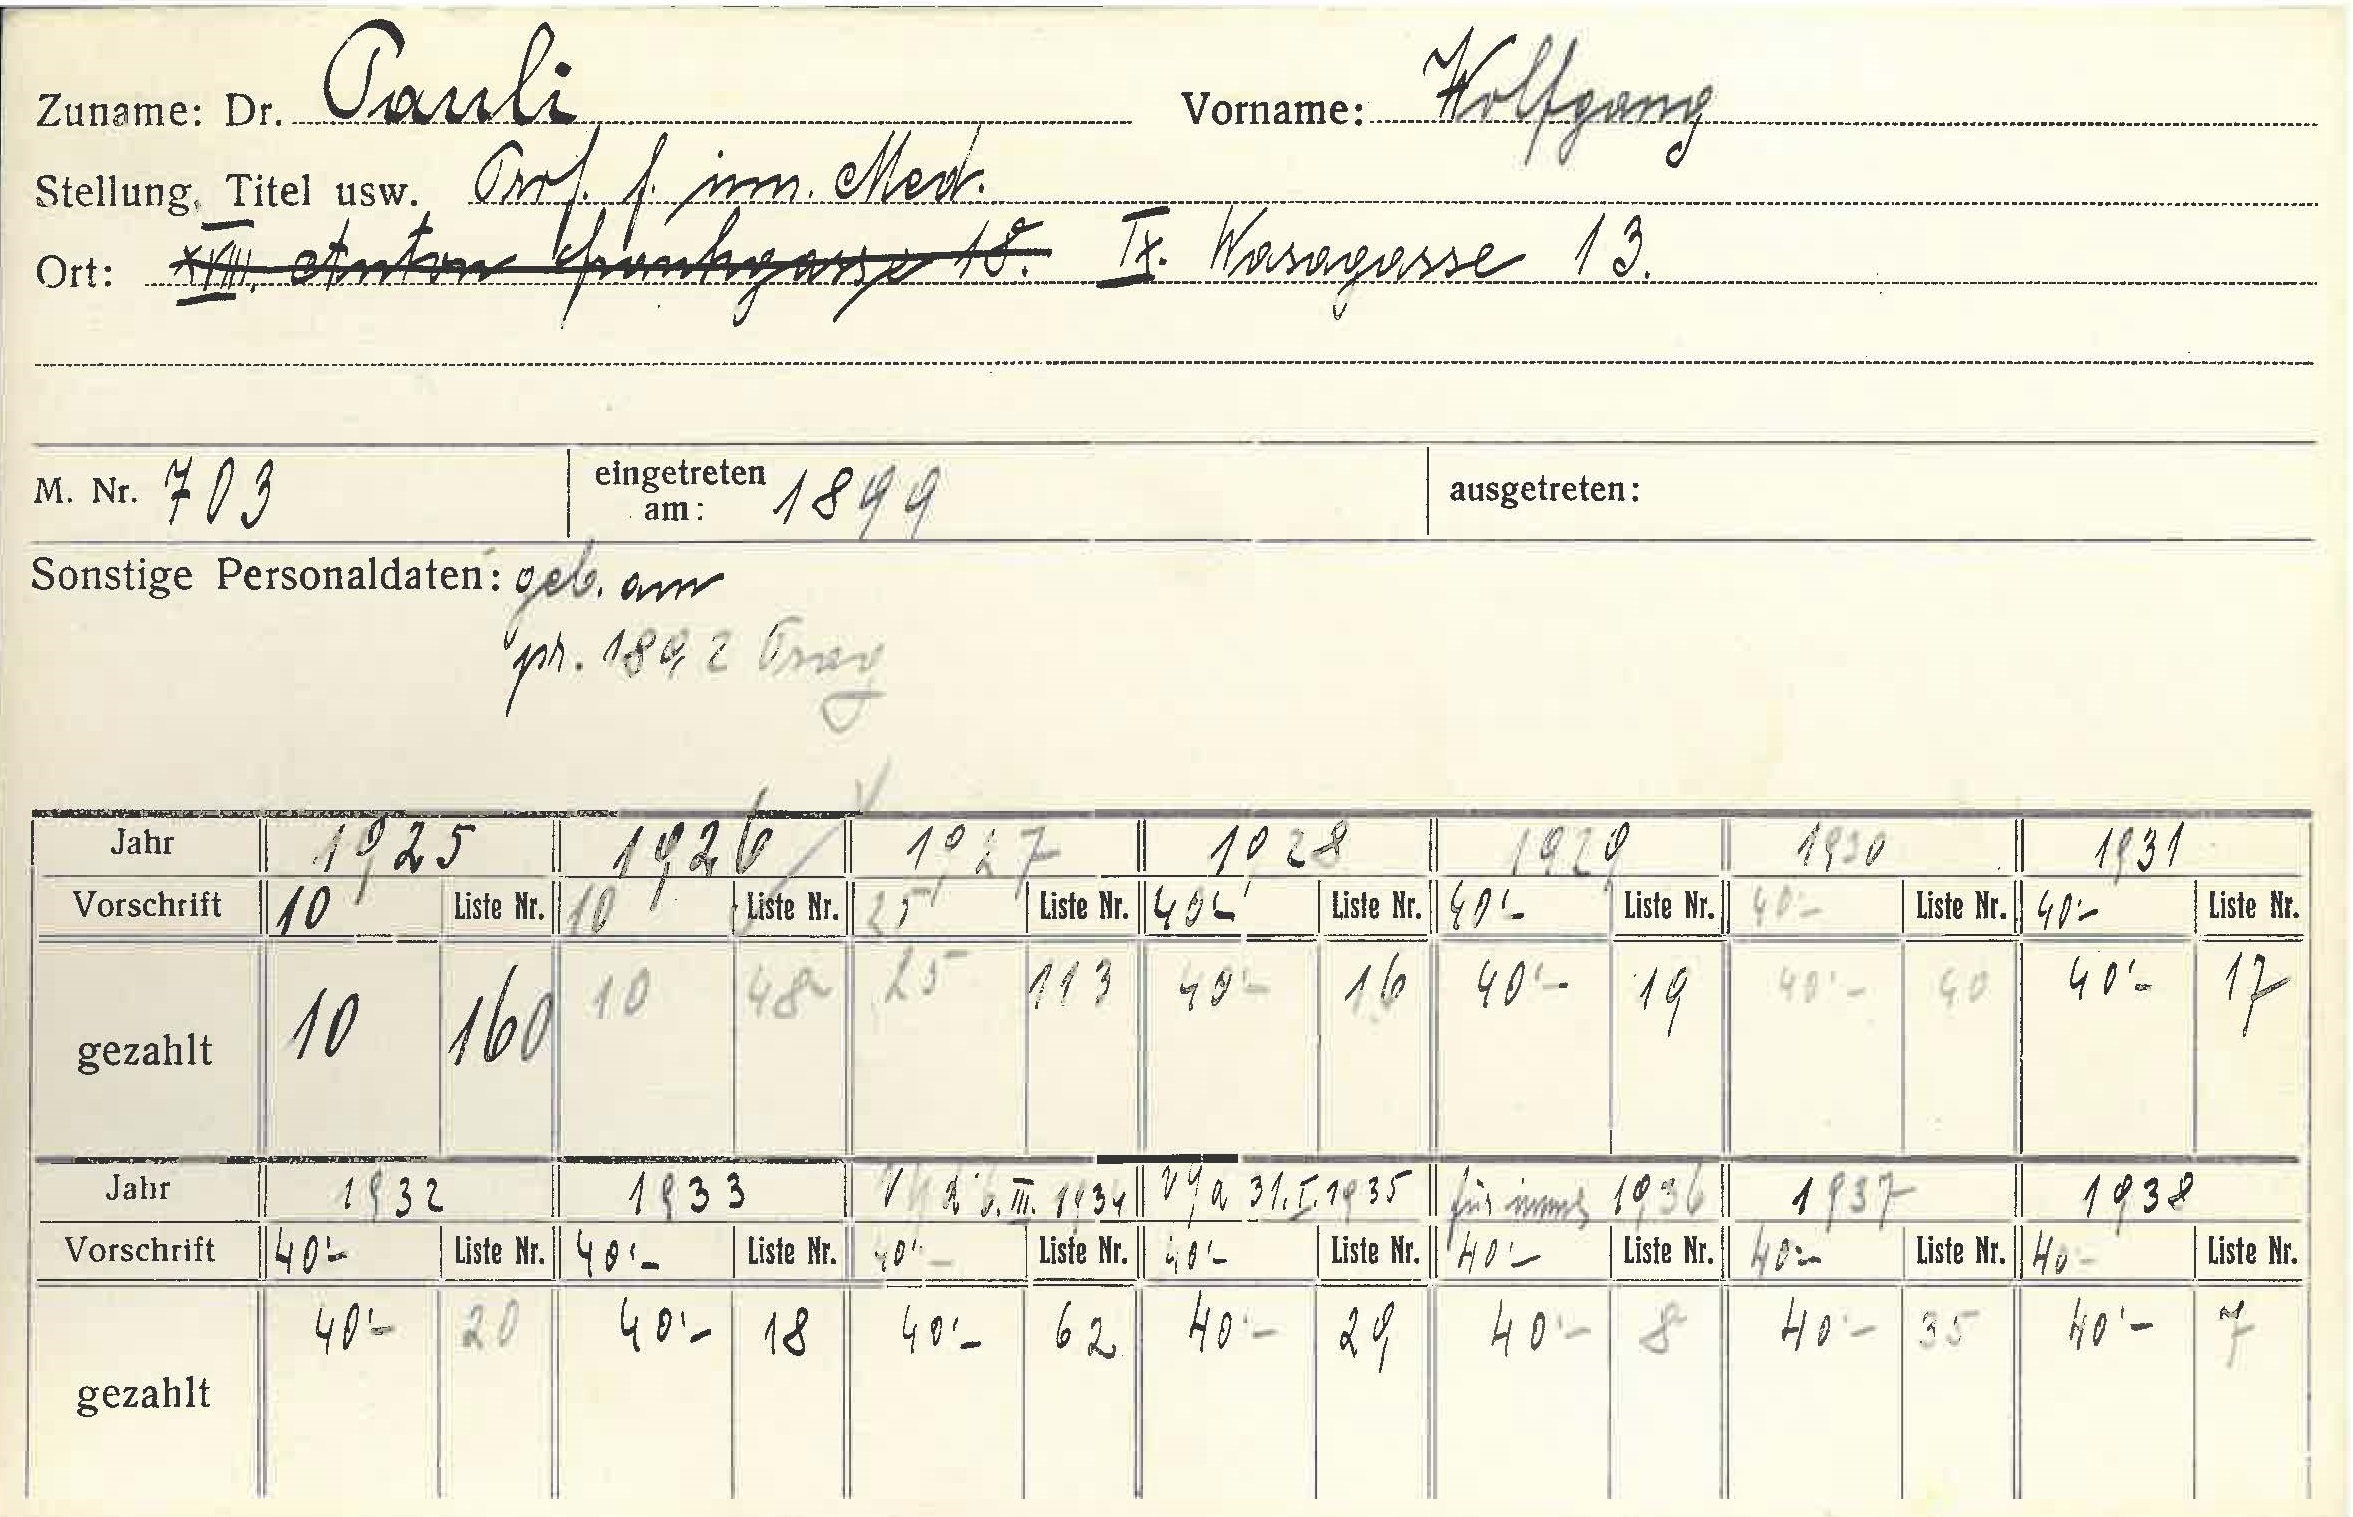 Zuname: Dr. Pauli Vorname: Wolfgang
Stellung, Titel usw. Prof. f. inn. Med.
Ort: XVIII. Anton Frankgasse 18. IX. Wasagasse 13.
M. Nr. 703 eingetreten am: 1899 ausgetreten:
Sonstige Personaldaten: geb. am
pr. 1892 Prag
Jahr 1925 1926 1927 1928 1929 1930 1931
Vorschrift 10 Liste Nr. 10 Liste Nr. 25 Liste Nr. 40'- Liste Nr. 40'- Liste Nr. 40'- Liste Nr. 40'- Liste Nr.
gezahlt 10 160 10 48 25 113 40'- 16 40'- 19 40'- 40 40'- 17
Jahr 1932 1933 III. 1934 31. I. 1935 für 1936 1937 1938
Vorschrift 40'- Liste Nr. 40'- Liste Nr. 40'- Liste Nr. 40'- Liste Nr. 40'- Liste Nr. 40'- Liste Nr. 40- Liste Nr.
gezahlt 40'- 20 40'- 18 40'- 62 40'- 29 40'- 8 40'- 35 40'- 7